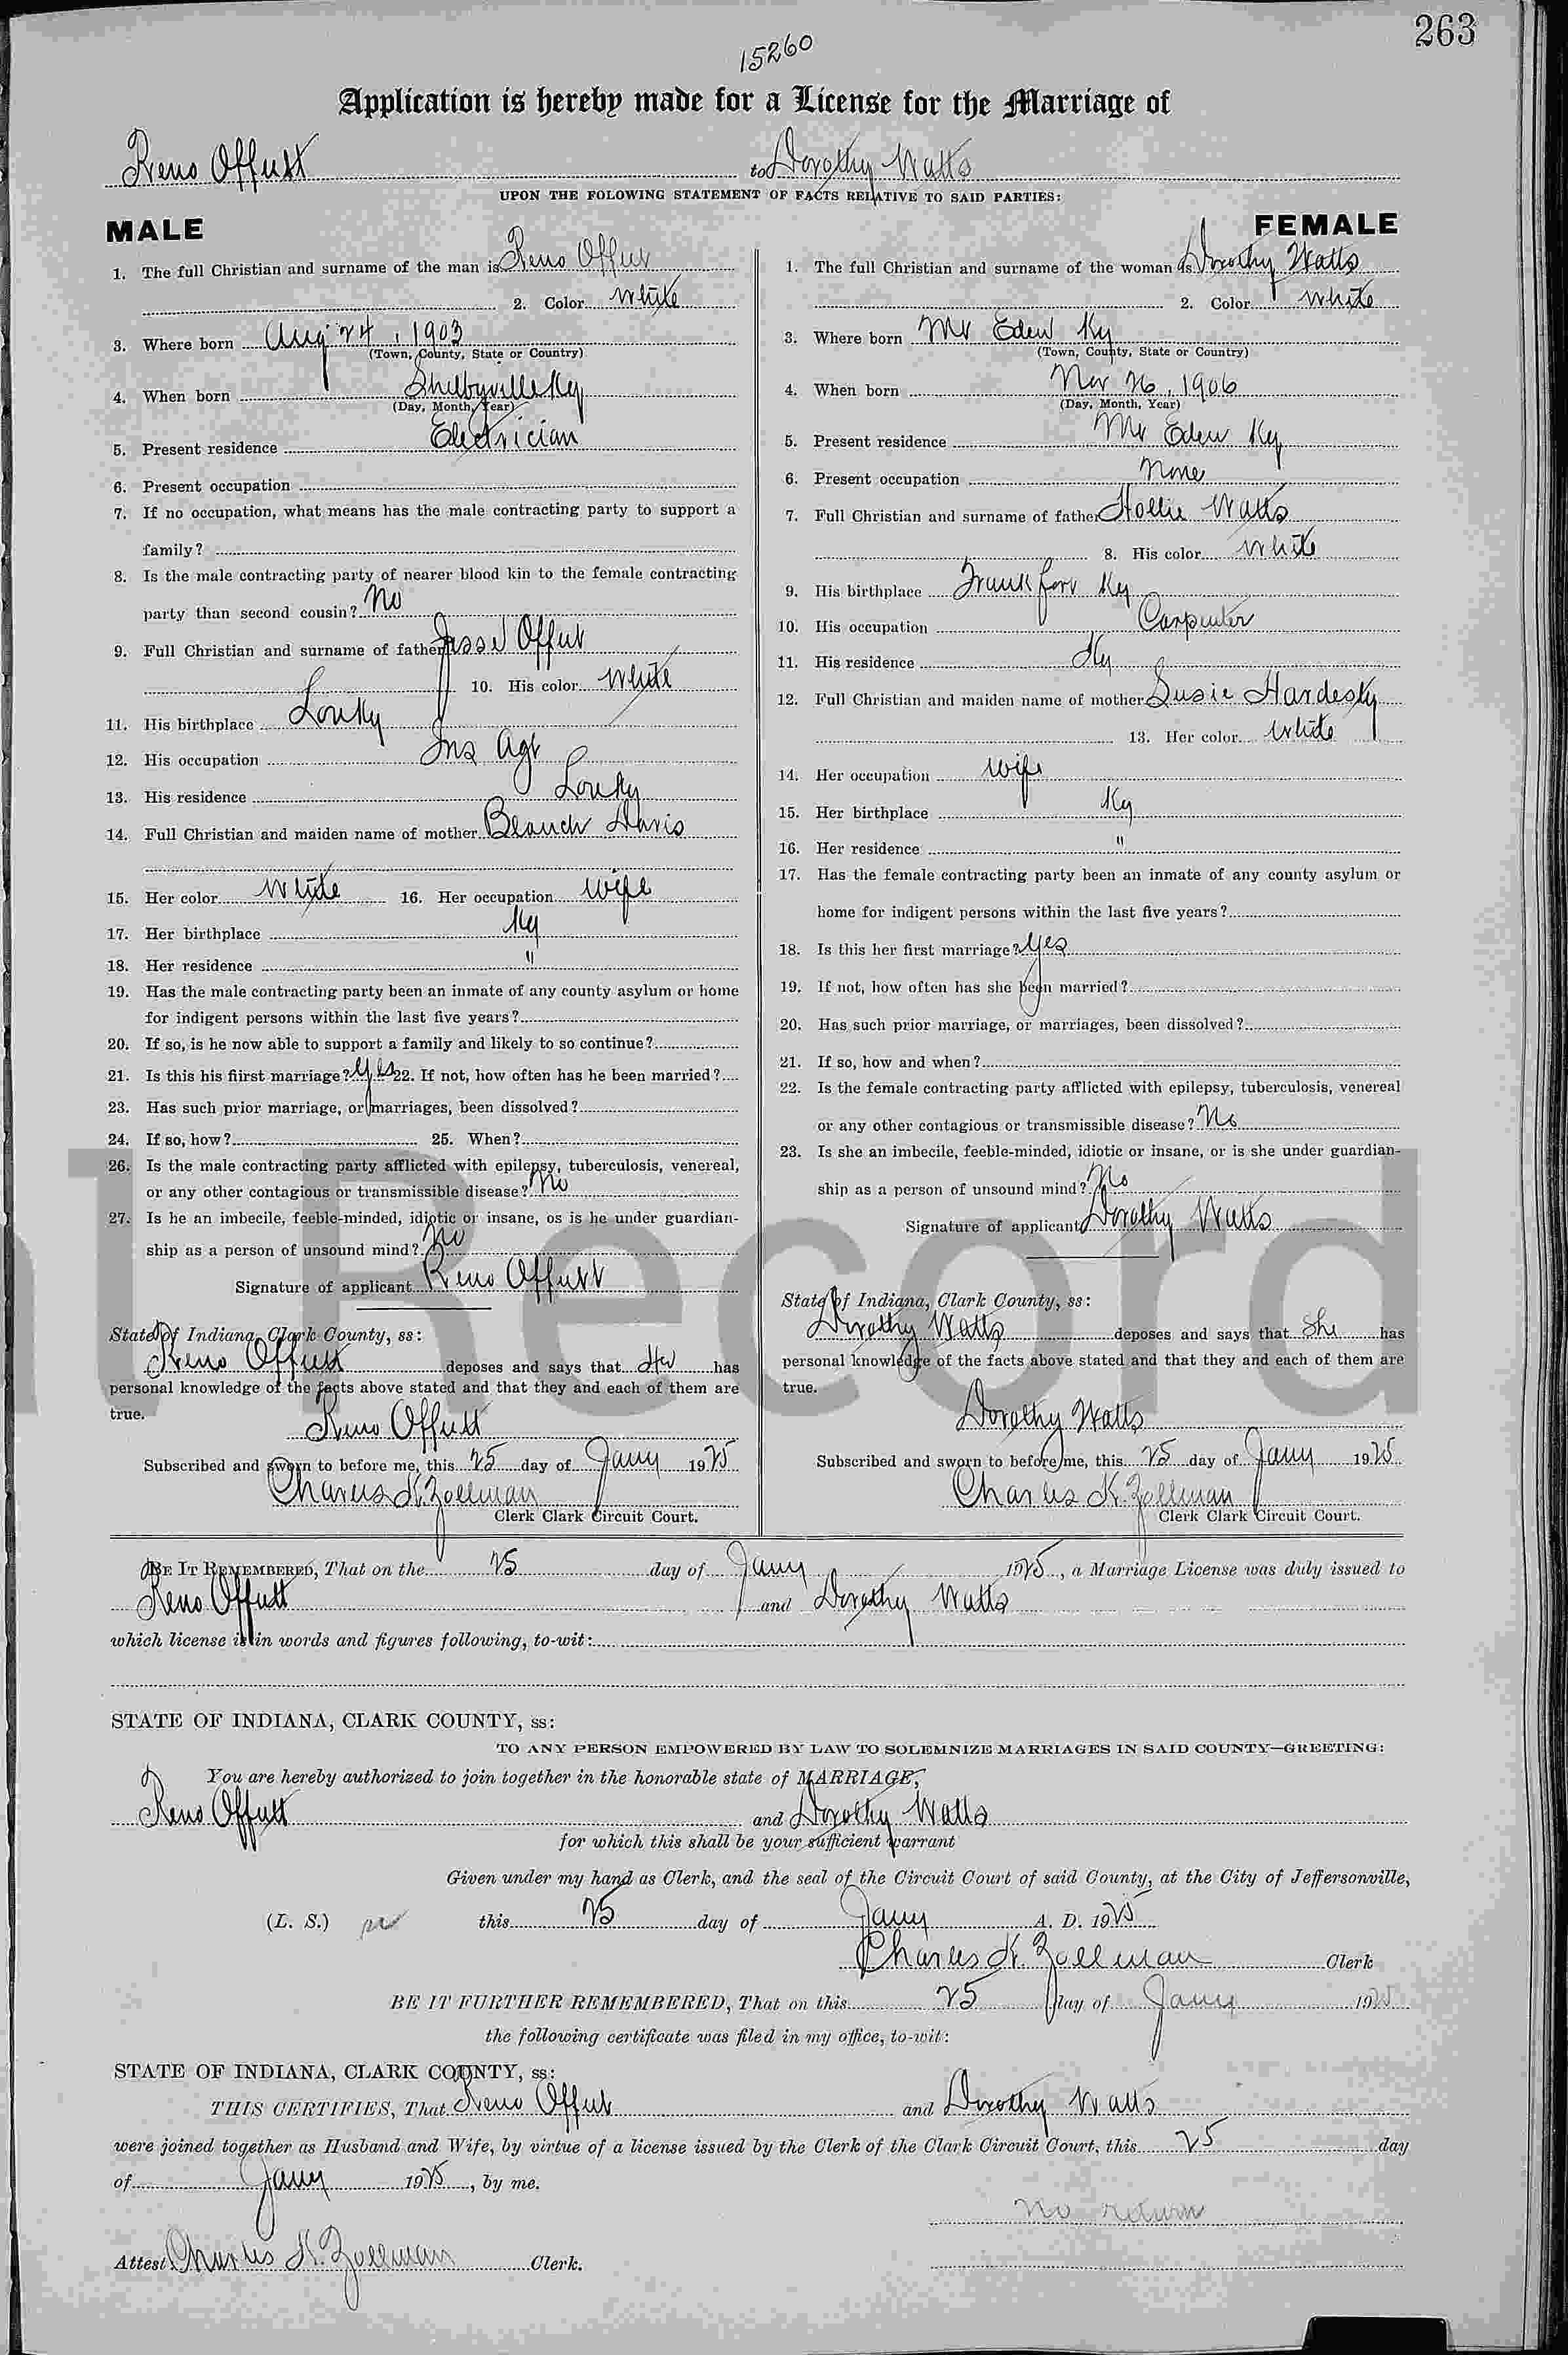 263
15260
Application is hereby made for a License for the Marriage of
Reno Offutt to Dorothy Watts
UPON THE FOLOWING STATEMENT OF FACTS RELATIVE TO SAID PARTIES:
MALE
1. The full Christian and surname of the man is Reno Offut
2. Color White
3. Where born Aug 24, 1903
(Town, County, State or Country)
4. When born Shelbyville Ky
(Day, Month, Year)
5. Present residence Electrician
6. Present occupation
7. If no occupation, what means has the male contracting party to support a
family?
8. Is the male contracting party of nearer blood kin to the female contracting
party than second cousin? No
9. Full Christian and surname of father Jesse Offut
10. His color White
11. His birthplace LouKy
12. His occupation Ins Agt
13. His residence LouKy
14. Full Christian and maiden name of mother Blanch Davis
15. Her color White 16. Her occupation Wife
17. Her birthplace Ky
18. Her residence "
19. Has the male contracting party been an inmate of any county asylum or home
for indigent persons within the last five years?
20. If so, is he now able to support a family and likely to so continue?
21. Is this his fiirst marriage? Yes 22. If not, how often has he been married?
23. Has such prior marriage, or marriages, been dissolved?
24. If so, how? 25. When?
26. Is the male contracting party afflicted with epilepsy, tuberculosis, venereal,
or any other contagious or transmissible disease? No
27. Is he an imbecile, feeble-minded, idiotic or insane, os is he under guardian-
ship as a person of unsound mind? No
Signature of applicant Reno Offutt
State of Indiana, Clark County, ss:
Reno Offutt deposes and says that He has
personal knowledge of the facts above stated and that they and each of them are
true.
Reno Offutt
Subscribed and sworn to before me, this 25 day of Jany 1925
Charles K. Zollman
Clerk Clark Circuit Court.
FEMALE
1. The full Christian and surname of the woman is Dorothy Watts
2. Color White
3. Where born Mt Eden Ky
(Town, County, State or Country)
4. When born Nov 26, 1906
(Day, Month, Year)
5. Present residence Mt Eden Ky
6. Present occupation None
7. Full Christian and surname of father Hollie Watts
8. His color White
9. His birthplace Frankfort Ky
10. His occupation Carpenter
11. His residence Ky
12. Full Christian and maiden name of mother Susie Hardesty
13. Her color White
14. Her occupation Wife
15. Her birthplace Ky
16. Her residence "
17. Has the female contracting party been an inmate of any county asylum or
home for indigent persons within the last five years?
18. Is this her first marriage? Yes
19. If not, how often has she been married?
20. Has such prior marriage, or marriages, been dissolved?
21. If so, how and when?
22. Is the female contracting party afflicted with epilepsy, tuberculosis, venereal
or any other contagious or transmissible disease? No
23. Is she an imbecile, feeble-minded, idiotic or insane, or is she under guardian-
ship as a person of unsound mind? No
Signature of applicant Dorothy Watts
State of Indiana, Clark County, ss:
Dorothy Watts deposes and says that She has
personal knowledge of the facts above stated and that they and each of them are
true.
Dorothy Watts
Subscribed and sworn to before me, this 25 day of Jany 1925
Charles K. Zollman
Clerk Clark Circuit Court.
BE IT REMEMBERED, That on the 25 day of Jany 1925, a Marriage License was duly issued to
Reno Offutt and Dorothy Watts
which license is in words and figures following, to-wit:
STATE OF INDIANA, CLARK COUNTY, ss:
TO ANY PERSON EMPOWERED BY LAW TO SOLEMNIZE MARRIAGES IN SAID COUNTY—GREETING:
You are hereby authorized to join together in the honorable state of MARRIAGE,
Reno Offutt and Dorothy Watts
for which this shall be your sufficient warrant
Given under my hand as Clerk, and the seal of the Circuit Court of said County, at the City of Jeffersonville,
(L. S.) this 25 day of Jany A. D. 1925
Charles K. Zollman Clerk
BE IT FURTHER REMEMBERED, That on this 25 day of Jany 1925
the following certificate was filed in my office, to-wit:
STATE OF INDIANA, CLARK COUNTY, ss:
THIS CERTIFIES, That Reno Offut and Dorothy Watts
were joined together as Husband and Wife, by virtue of a license issued by the Clerk of the Clark Circuit Court, this 25 day
of Jany 1925, by me.
No return
Attest Charles K. Zollman Clerk.
l Record